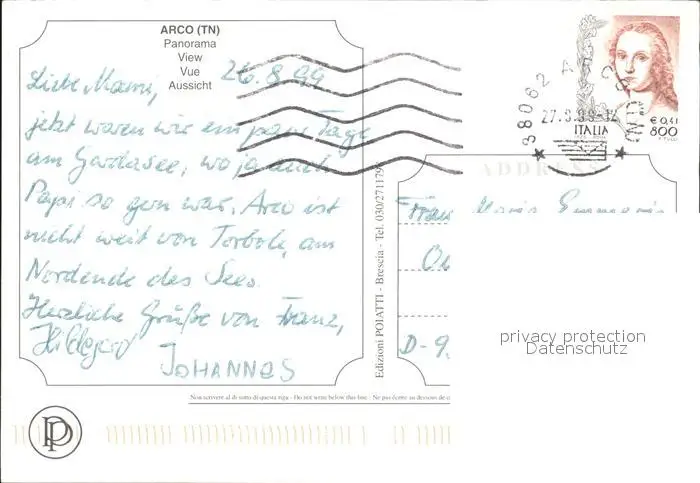 ARCO (TN)
Panorama
View
Vue
Aussicht
26.8.99
Liebe Mami,
jetzt waren wir ein paar Tage
am Gardasee, wo ja auch
Papi so gern war. Arco ist
nicht weit von Torbole, am
Nordende des Sees.
Herzliche Grüße von Franz,
Hildegard
JOHANNES
Edizioni POIATTI - Brescia - Tel. 030/271179
38062 A
27.8.99-12
€ 0,41
ITALIA
800
ADDRESS
Frau Maria
D-9
privacy protection
Datenschutz
Non scrivere al di sotto di questa riga - Do not write below this line - Ne pas écrire au dessous de
PP